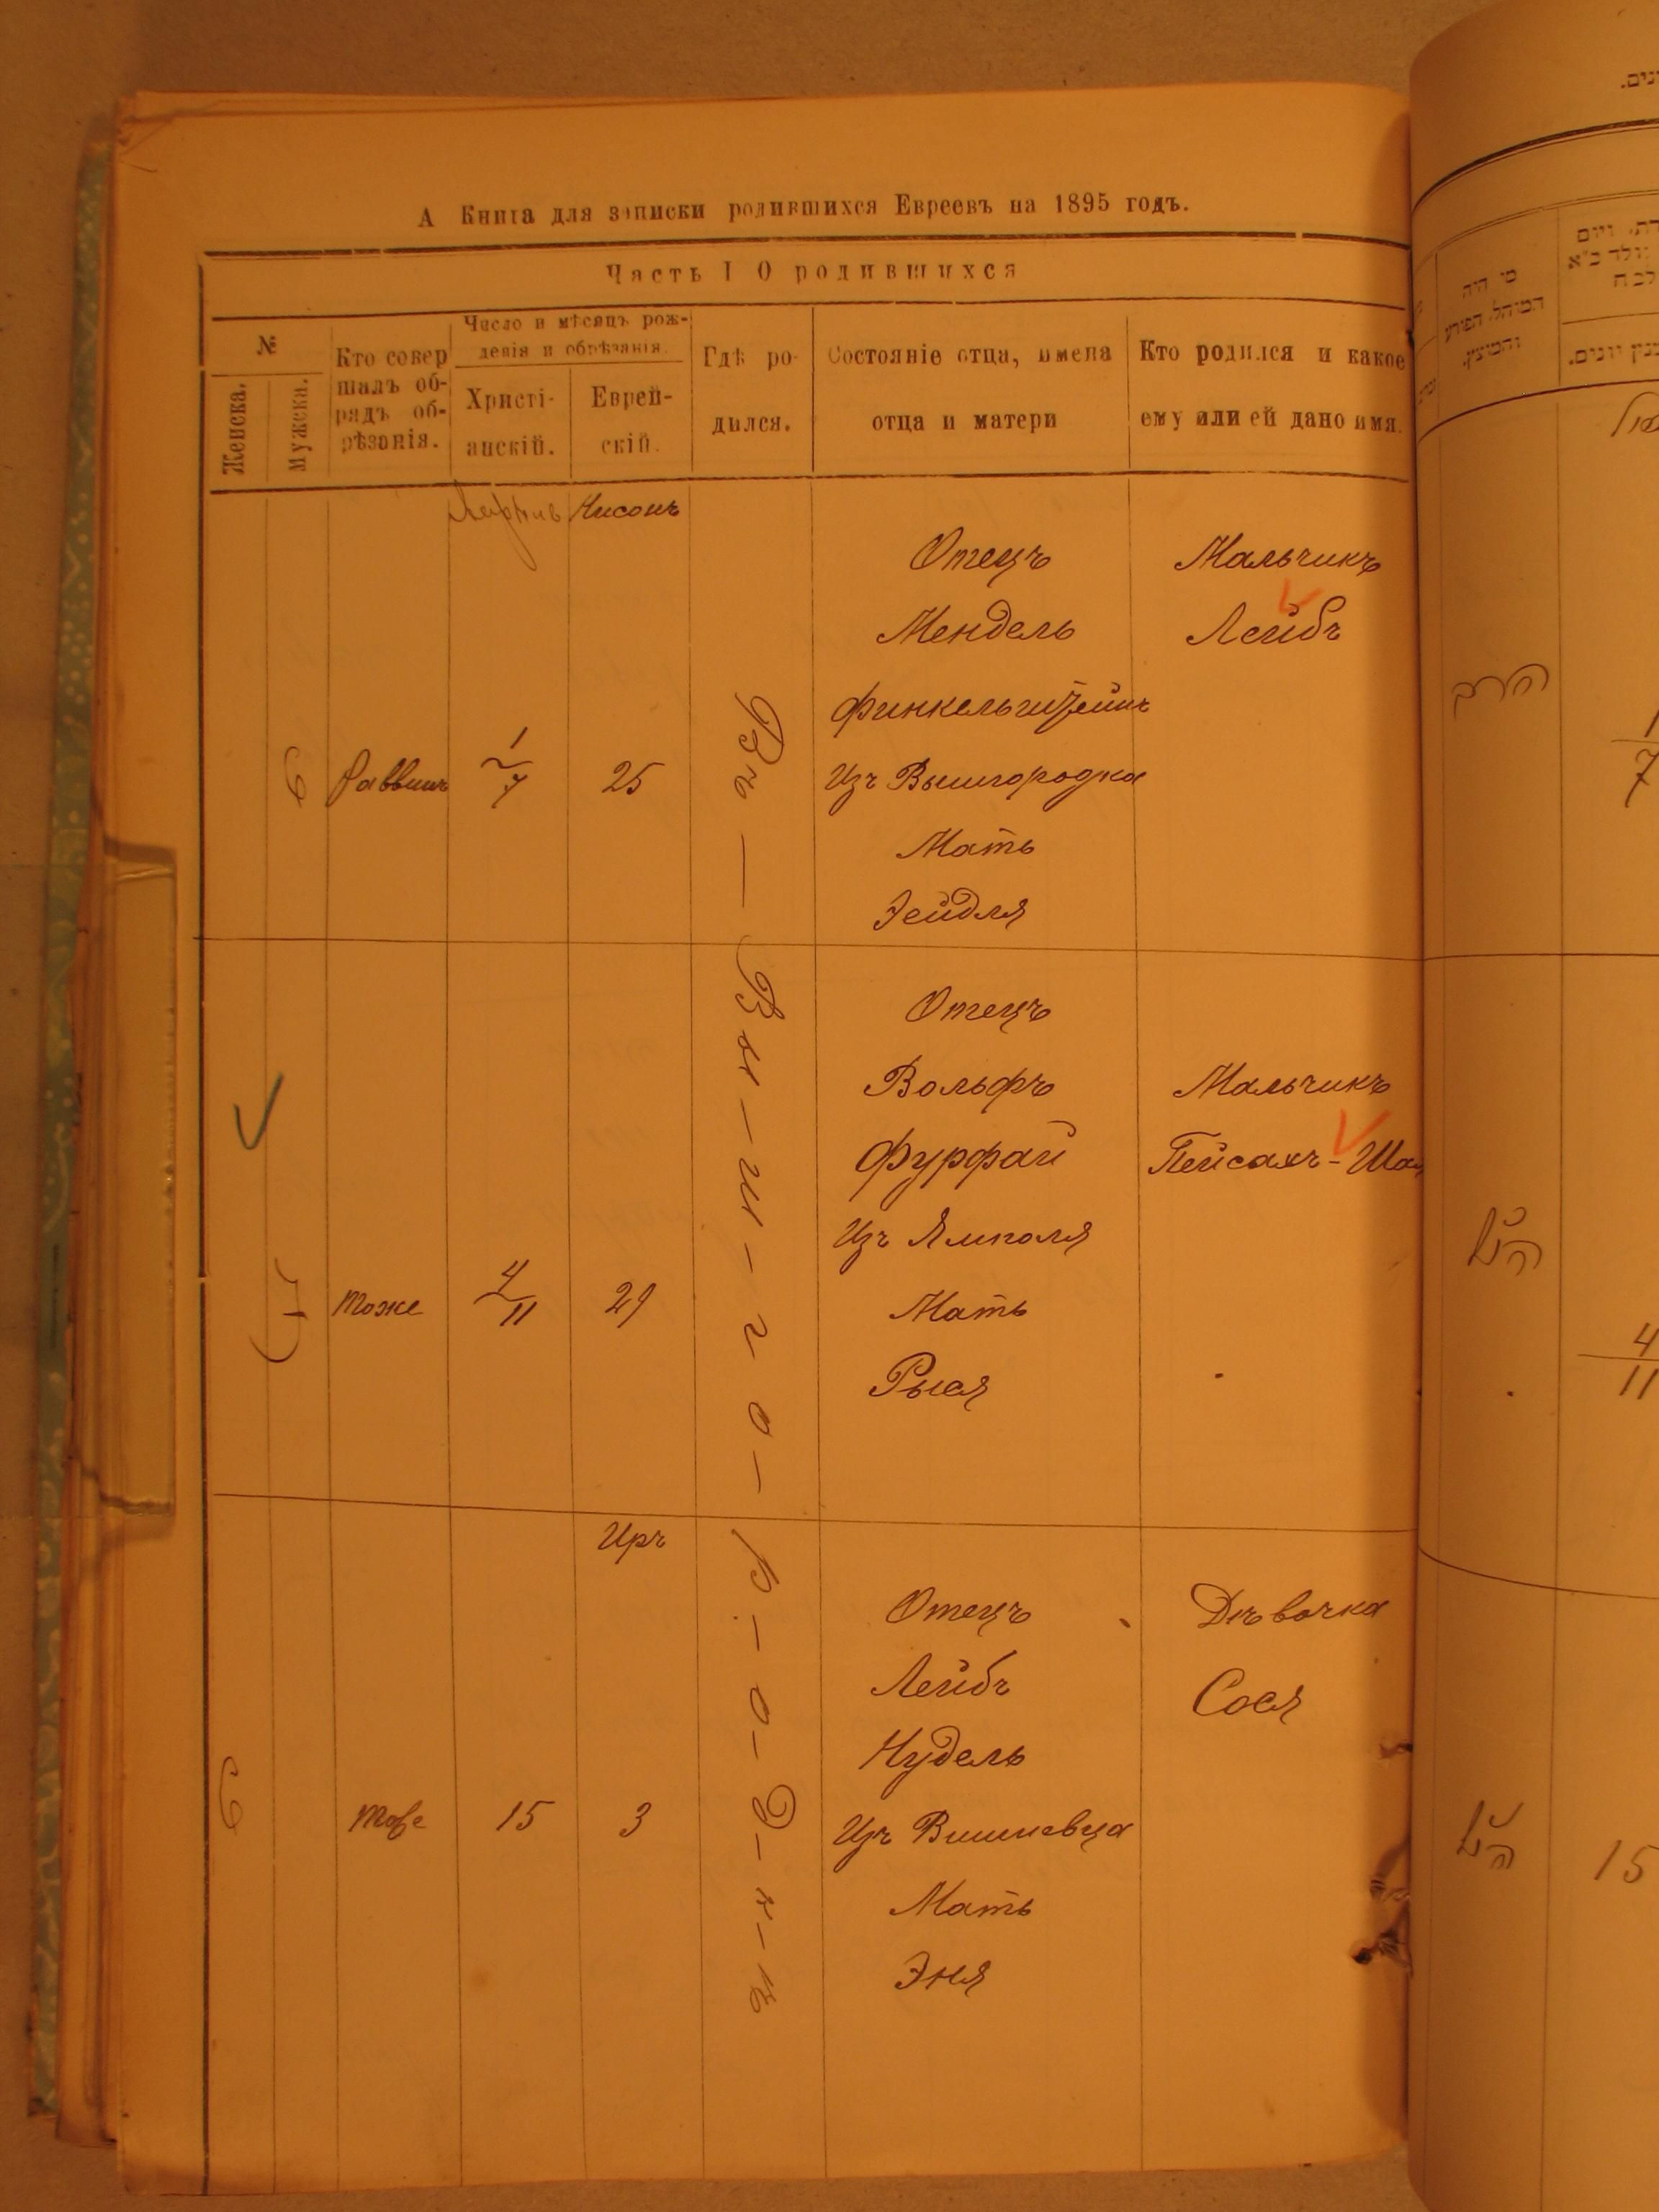 А Книга для записки родившихся Евреевъ на 1895 годъ.
Часть I О родившихся
№
Женска.
Мужска.
Кто совер
шалъ об-
рядъ об-
рѣзанія.
Число и мѣсяцъ рож-
денія и обрѣзанія.
Христі-
анскій.
Еврей-
скій.
Гдѣ ро-
дился.
Состояніе отца, имена
отца и матери
Кто родился и какое
ему или ей дано имя.
Нисонъ
6
Раввинъ
1
7
25
Въ — Вы-ш-г-о-р-о-д-к-ѣ
Отецъ
Мендель
Финкельштейнъ
Изъ Вышгородка
Мать
Зейдля
Мальчикъ
Лейбъ
тоже
4
11
29
Отецъ
Вольфъ
Фурфай
Изъ Ямполя
Мать
Рыся
Мальчикъ
Пейсахъ-
Иръ
6
тоже
15
3
Отецъ
Лейбъ
Нудель
Изъ Вишневца
Мать
Эня
Дѣвочка
Сося
מי היה
המוהל הפורע
והמוצץ.
1
7
4
11
15